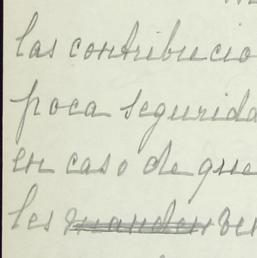 las contribucio
poca segurida
en caso de que
les manden ven